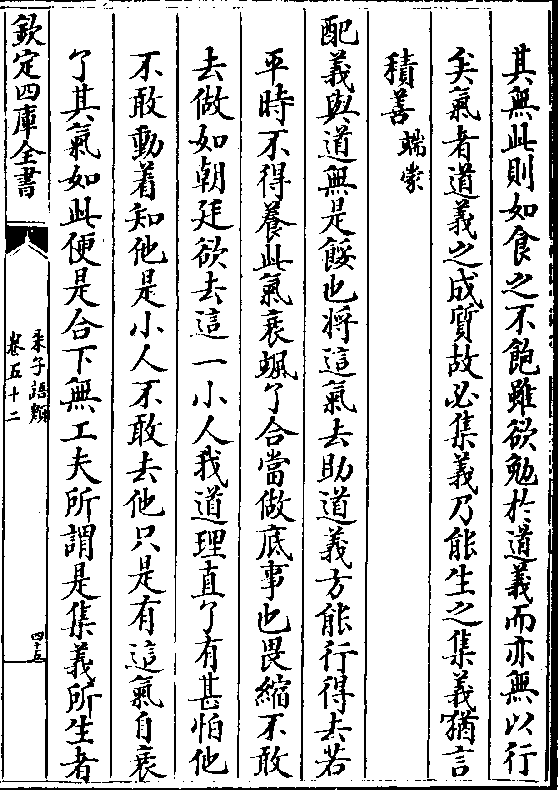 其無此則如食之不飽雖欲勉於道義而亦無以行
矣氣者道義之成質故必集義乃能生之集義猶言
積善端蒙
配義與道無是餒也將這氣去助道義方能行得去若
平時不得養此氣衰颯了合當做底事也畏縮不敢
去做如朝廷欲去這一小人我道理直了有甚怕他
不敢動着知他是小人不敢去他只是有這氣自衰
了其氣如此便是合下無工夫所謂是集義所生者
欽定四庫全書
朱子語類
卷五十二